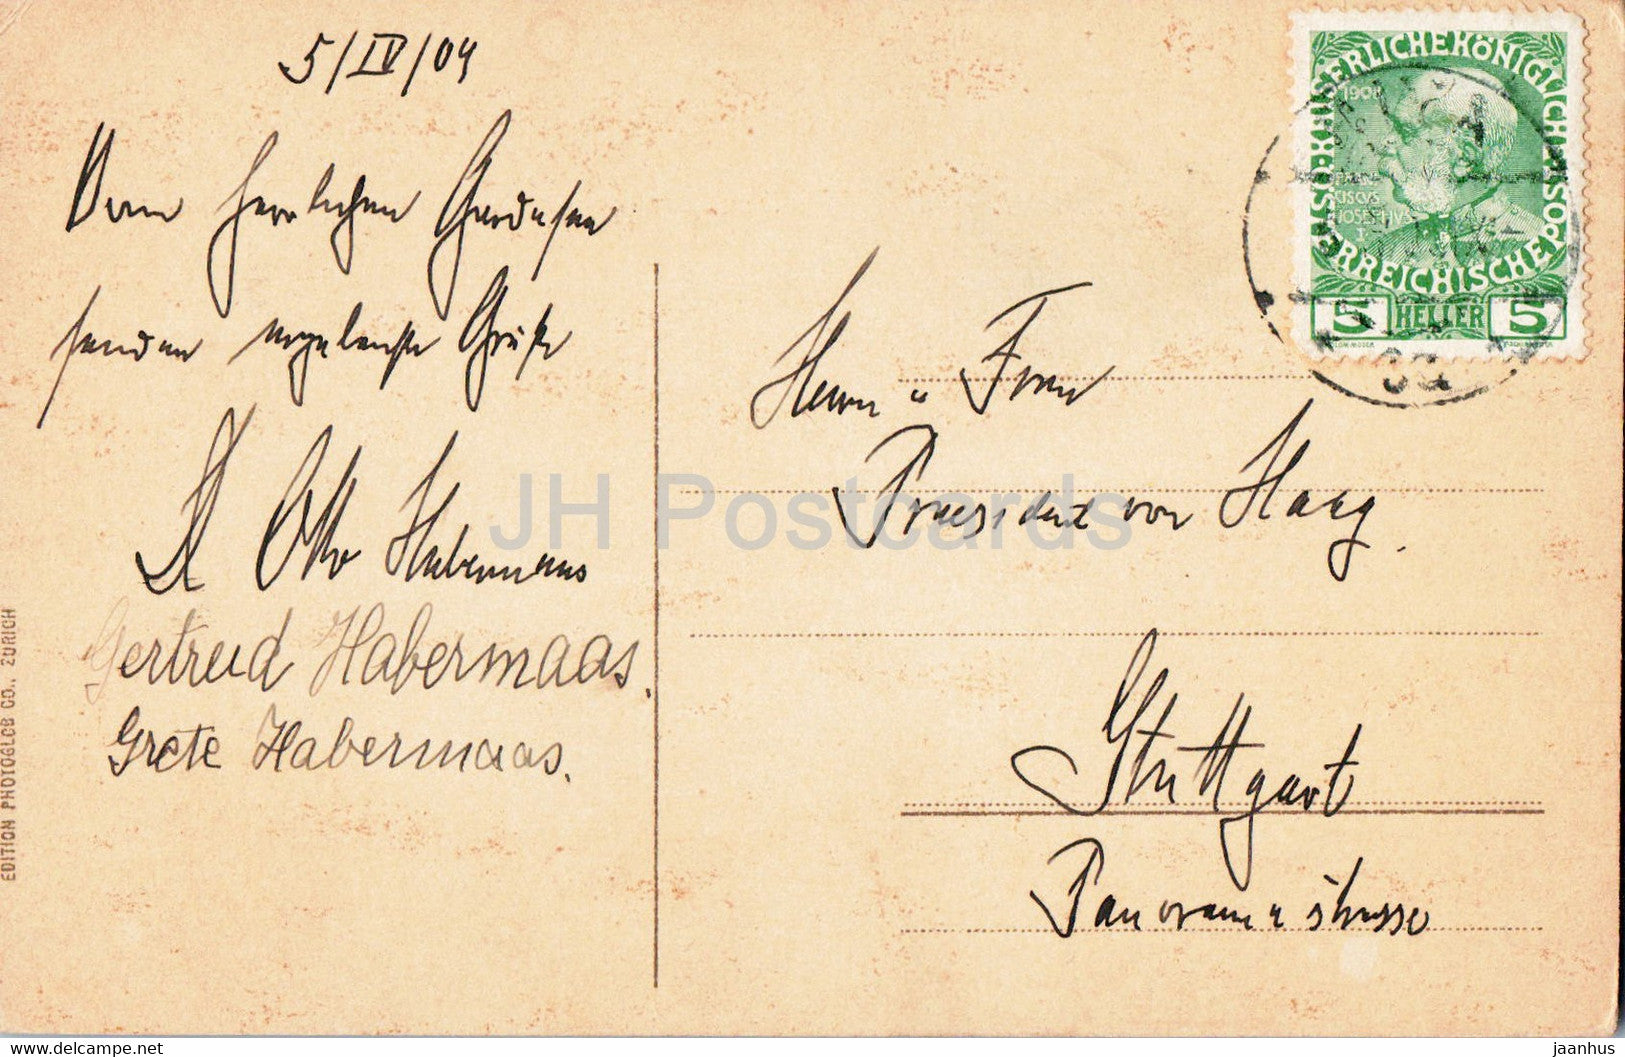 5/IV/09
Vom herrlichen Gardasee
senden ergebenste Grüße
Otto Habermaas
Gertrud Habermaas.
Grete Habermaas.
EDITION PHOTOGLOB CO., ZÜRICH
KAISERLICHE KÖNIGLICHE ÖSTERREICHISCHE POST
1908
FRANCISCVS IOSEPHVS I
5 HELLER 5
Herrn u Frau
Praesident von Haag.
Stuttgart
Panoramastrasse
JH Postcards
hippostcard.com/store/jh-postcards
jaanhus